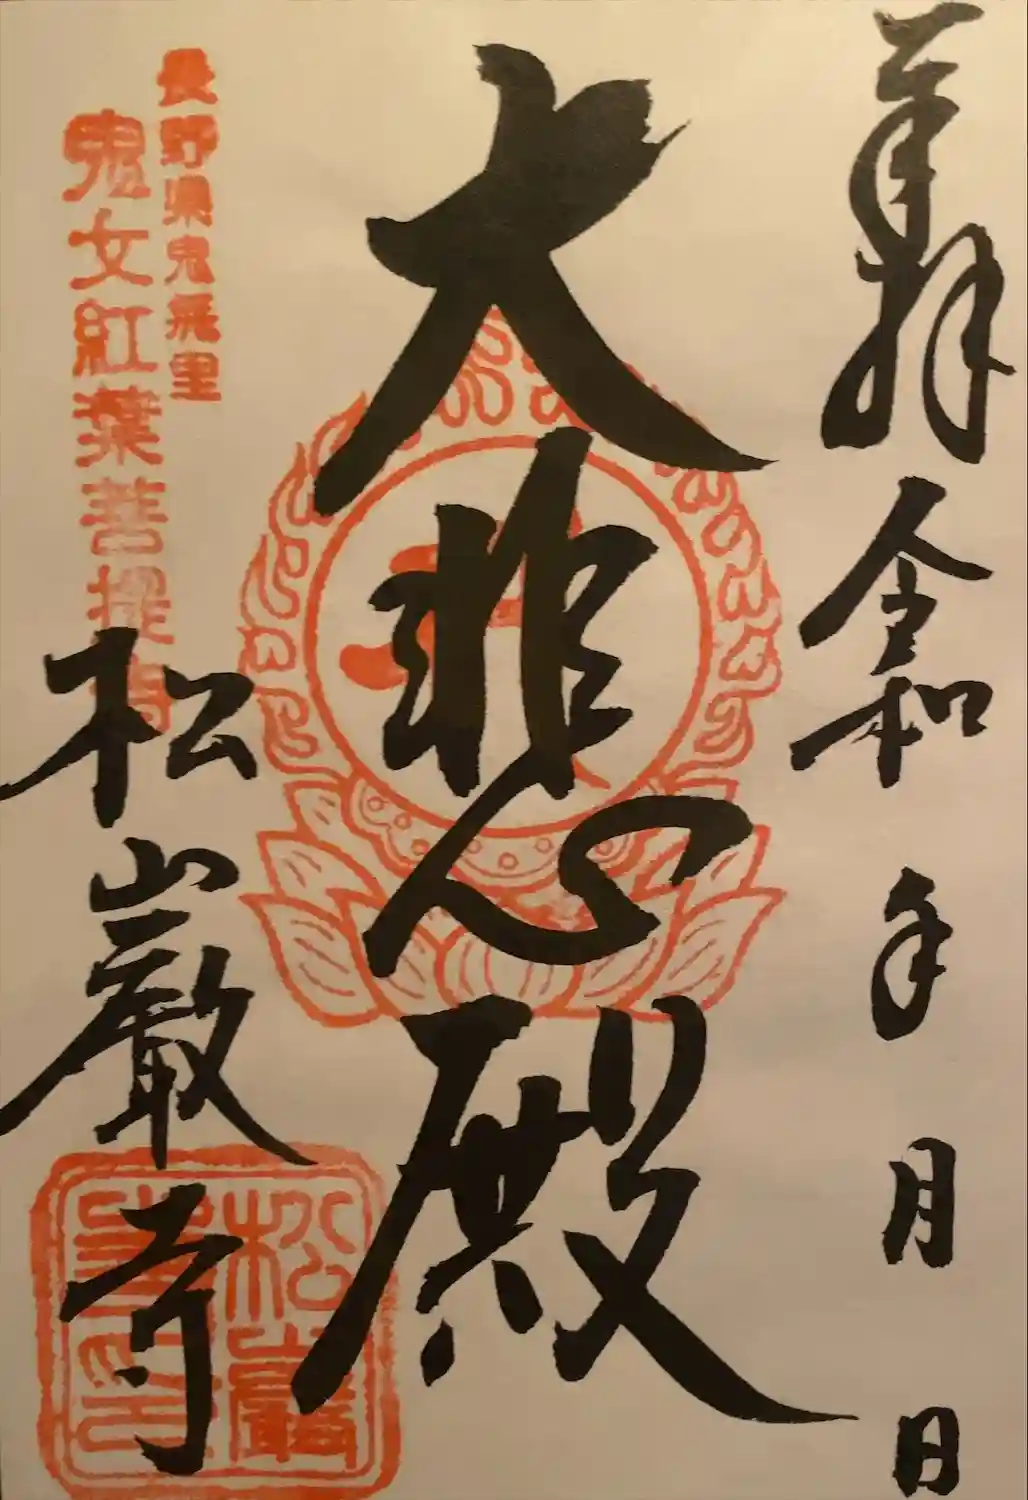 奉拝 令和 年 月 日
大悲心殿
長野県鬼無里
鬼女紅葉菩提寺
松巖寺
松巖寺印